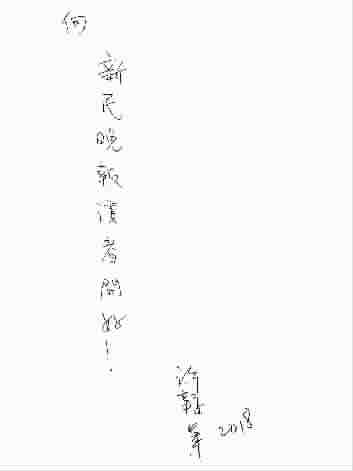 向
新民晚報讀者問好！
許鞍華 2018